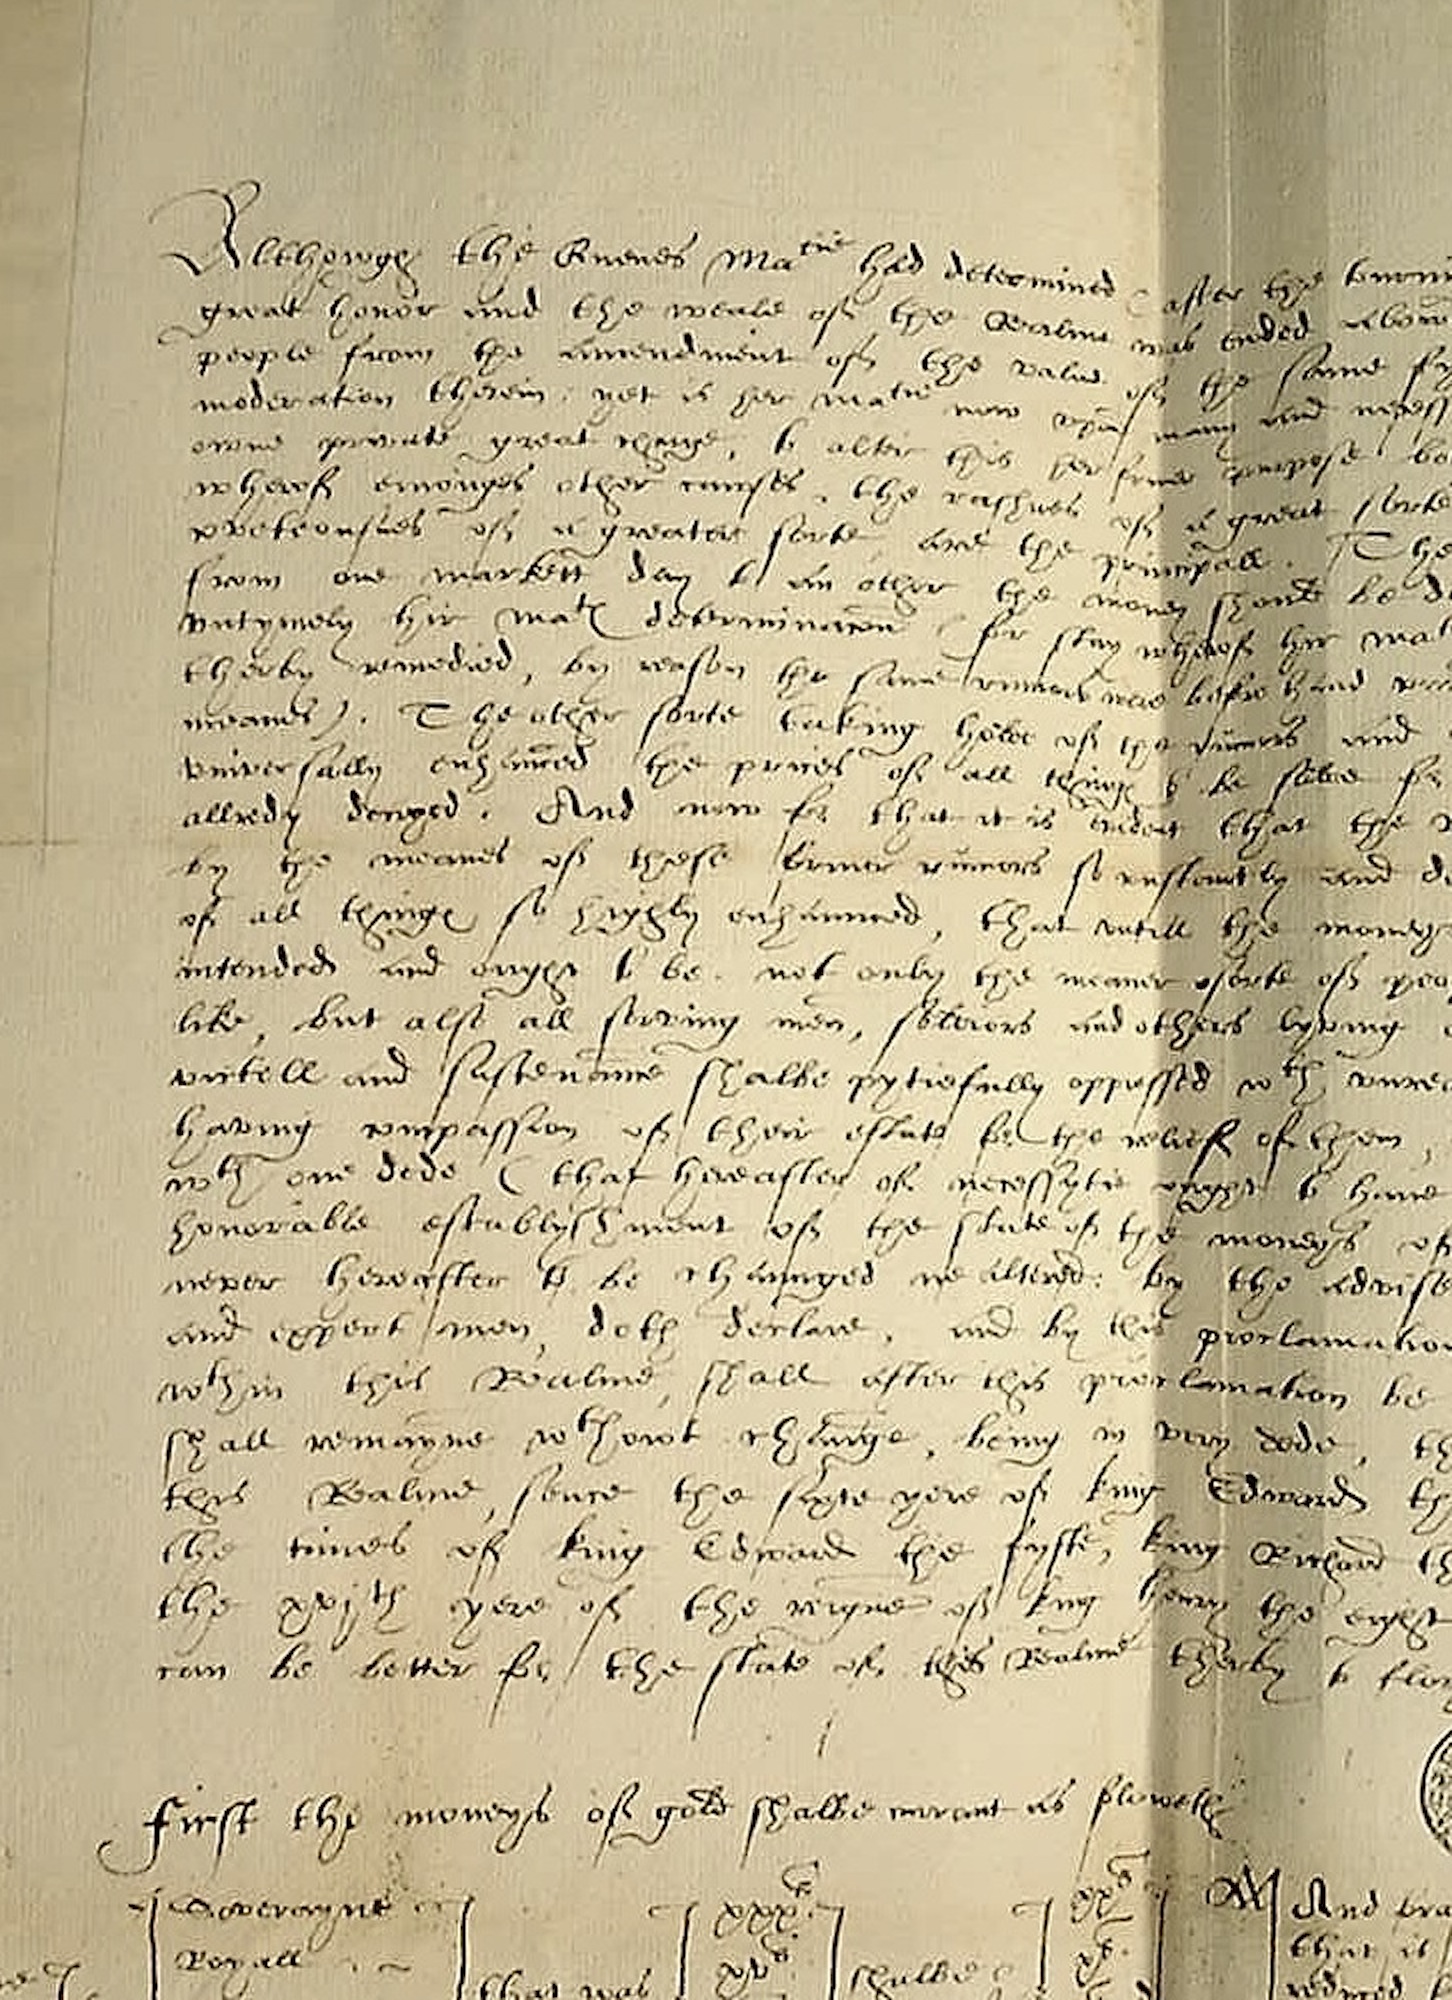 Althowgh the Quenes Ma^tie had determined ( after the
great honor and the weale off the Realme was ended
people from the amendment off the value off the same
moderation therein: yet is her ma^tie now vpon many and
owne private great charge, to alter this her former purpose
wheroff emonges other causes, the rashnes off a great sorte
off a greater sorte are the principall. The
from one markett day to an other the money should be
vntymely hir ma^ties determinacon ( for stay wheroff hir
therby remedied, by reason the same rumors wer before hand
meanes). The other sorte taking holde off the rumors and
vniversally enhaunced the prices off all things to be solde for
allredy . And now for that it is evident that the
by the meanes off these former rumors so constantly and
of all things so highly enhaunced, that vntill the moneys
intended and ought to be. not only the meaner sorte off
like, but also all serving men, soldiors and others lyving
victell and sustenance shalbe pytiefully oppressed w^th
having compassion off their estate for the relieff off them,
w^th one dede ( that hereafter of necessytie ought to have
honorable establyshment off the state off the moneys off
never hereafter to be chaunged ne altered: by the advise
and expert men, doth declare, and by this proclamation
w^thin this Realme, shall after this proclamation be
shall remayne w^thowt chaunge, being in very dede,
this Realme, sence the sixte yere off king Edward
the times off king Edward the fyfte, king Richard
the xvj^th yere off the reigne off king henry the eight
can be better for the state off this Realme therby to
First the moneys off gold shalbe corrant as foloweth
Soveraigne xxx^s xx^s And
Royall xv^s x^s that it
that was shalbe reduced